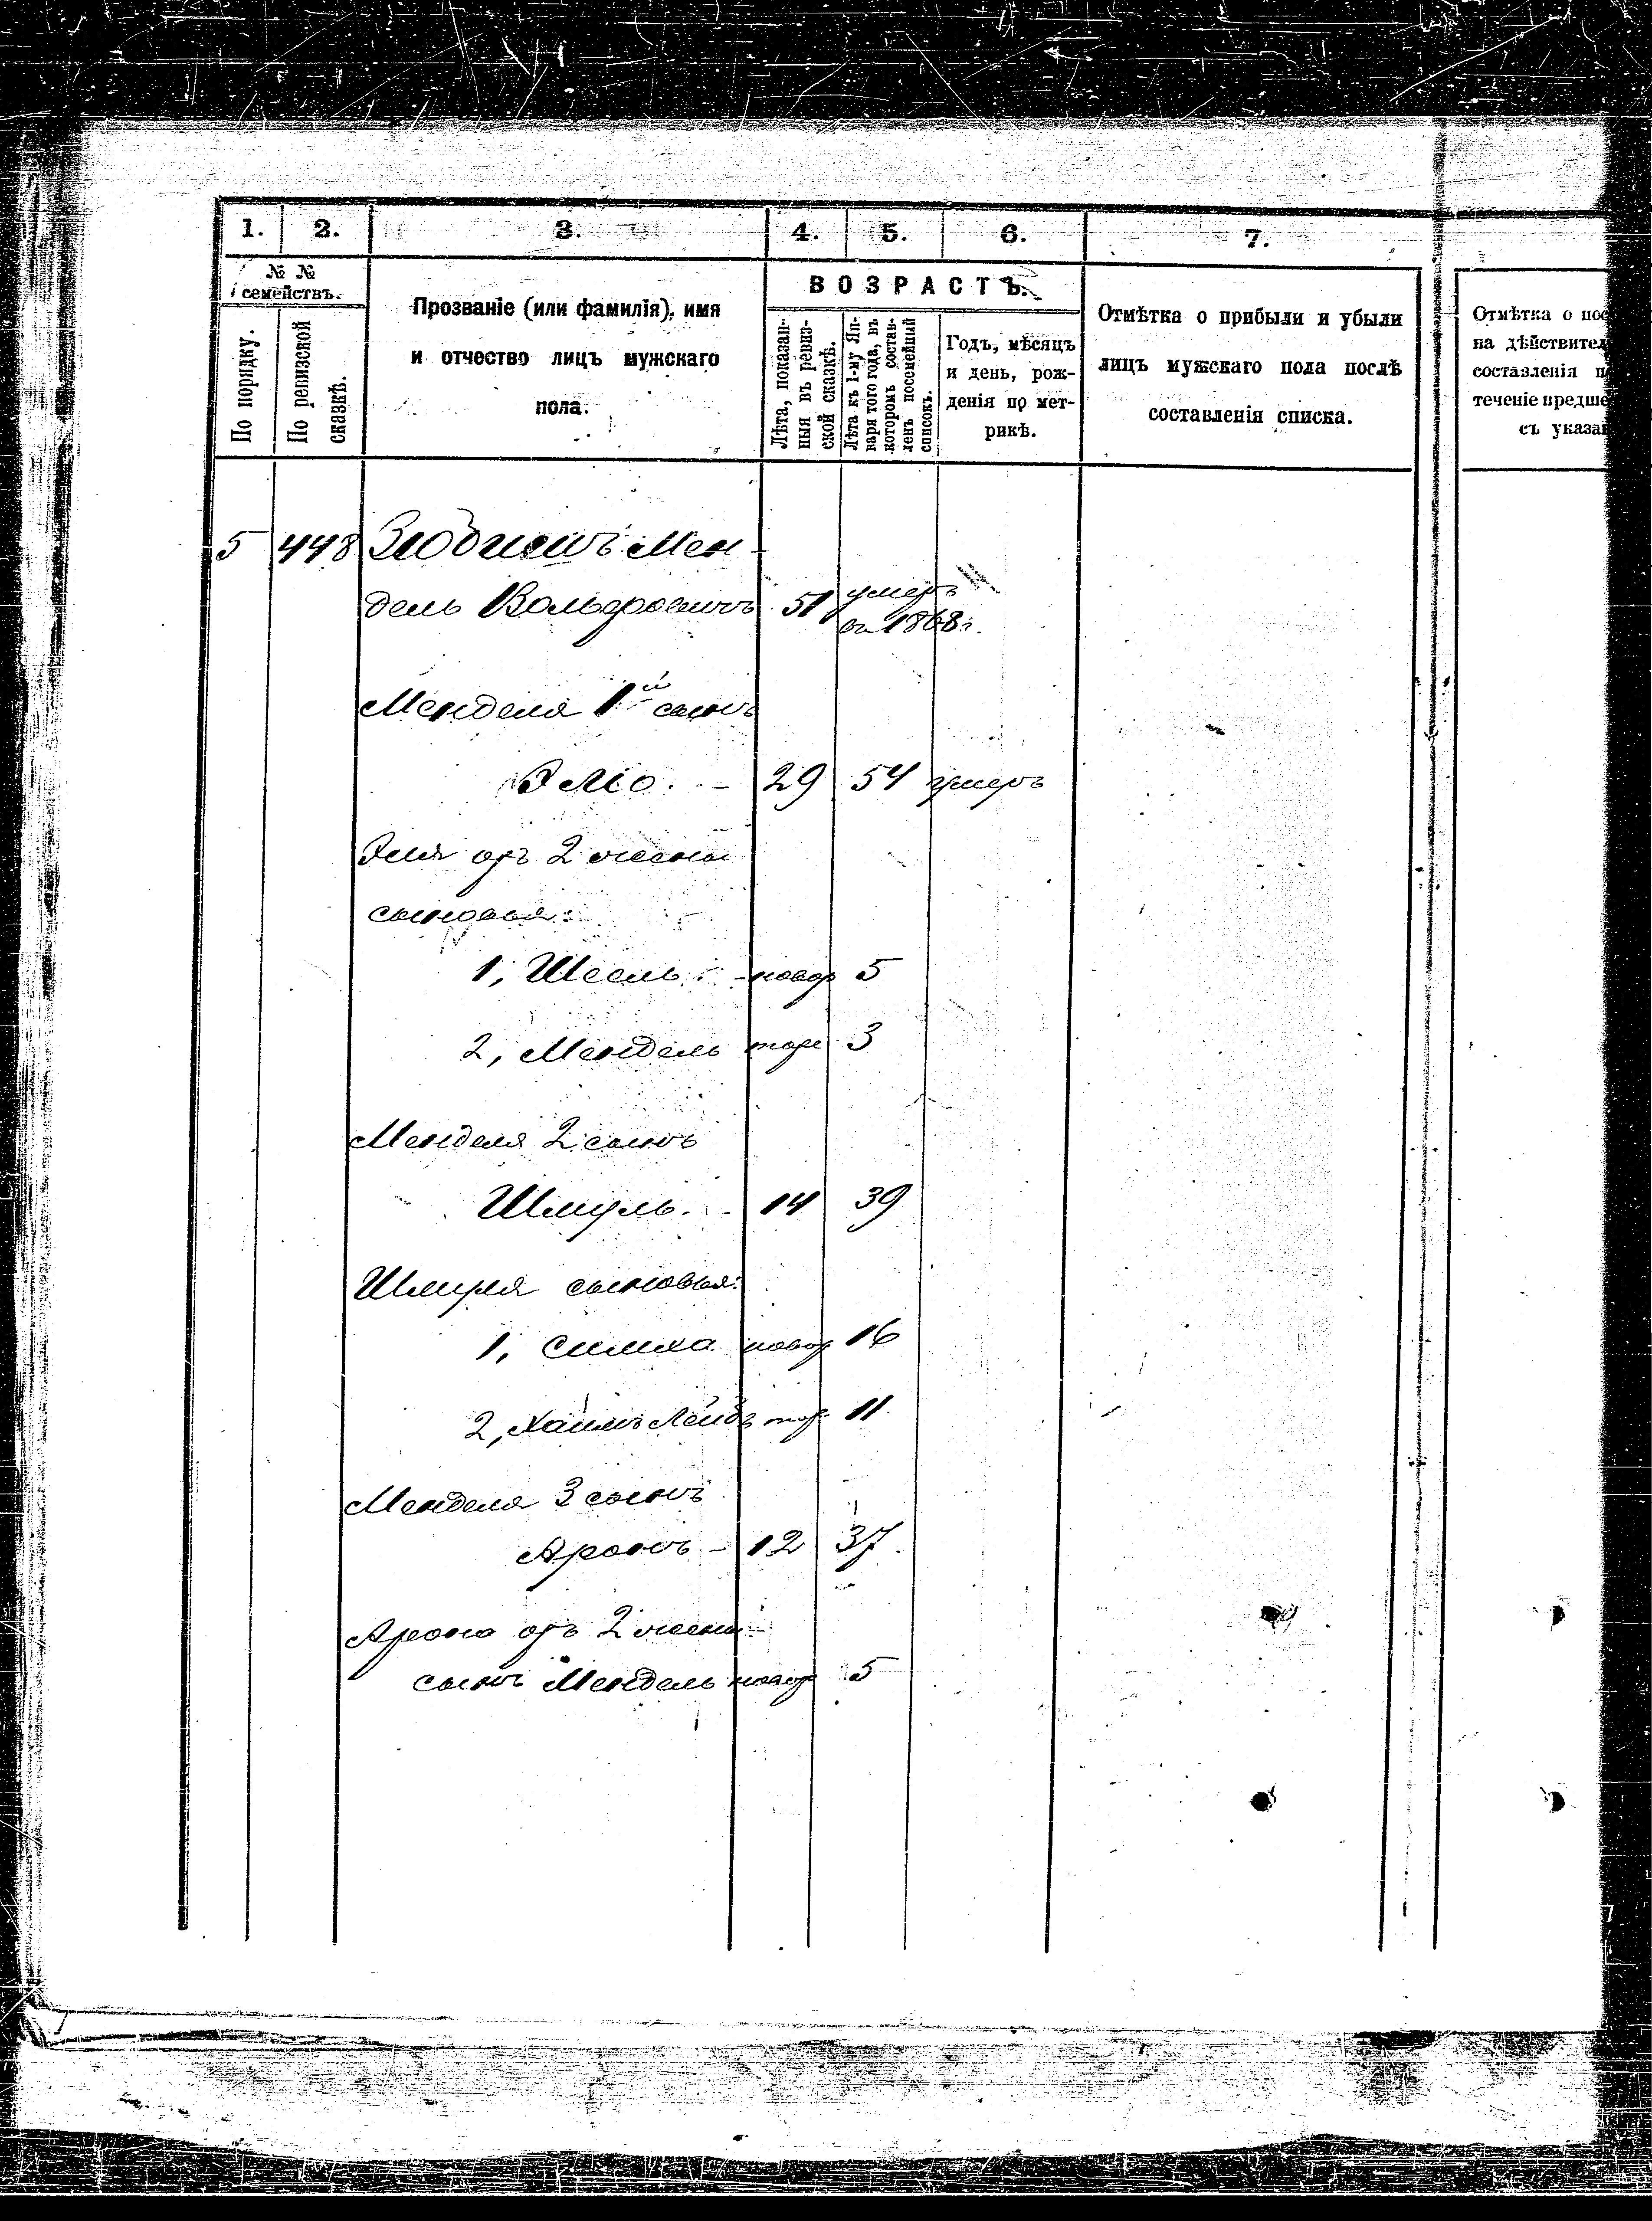 1. 2. 3. 4. 5. 6. 7.
№ №
семействъ.
По порядку.
По ревизской
сказкѣ.
Прозваніе (или фамилія), имя
и отчество лицъ мужскаго
пола.
ВОЗРАСТЪ.
Лѣта, показан-
ныя въ ревиз-
ской сказкѣ.
Лѣта къ 1-му Ян-
варя того года, въ
которомъ состав-
ленъ посемейный
списокъ.
Годъ, мѣсяцъ
и день, рож-
денія по мет-
рикѣ.
Отмѣтка о прибыли и убыли
лицъ мужскаго пола послѣ
составленія списка.
Отмѣтка о пос
на дѣйствител
составленія п
теченіе предше
съ указа
5 448 Мен-
дель Вольфовичъ 51 умеръ
въ 1868 г.
Менделя 1й сынъ
Эліо. - 29 54 умеръ
Эля отъ 2 жены
сыновья:
1, новор 5
2, Мендель тоже 3
Менделя 2 сынъ
Шмуль. 14 39
Шмуля сыновья:
1, Симха новор 16
2, Хаимъ Лейба тож 11
Менделя 3 сынъ
Аронъ - 12 37.
Арона отъ 2 жены
сынъ Мендель новор 5